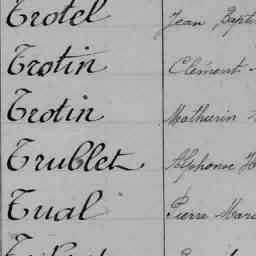 Trotel Jean Bapt
Trotin Clément
Trotin Mathurin
Trublet Alphonse H
Tual Pierre Mari